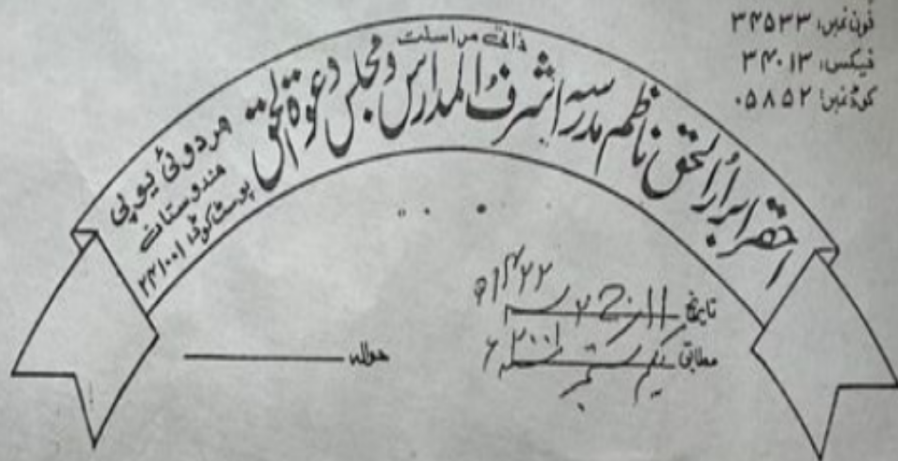 فون نمبر: ۳۴۵۳۳
فیکس: ۳۴۰۱۳
کوڈ نمبر: ۰۵۸۵۲
ذاتی مراسلت
احقر ابرارالحق ناظم مدرسہ اشرف المدارس و مجلس دعوة الحق
ہردوئی یوپی
ہندوستان
پوسٹ کوڈ: ۲۴۱۰۰۱
تاریخ ۱۱ ج ۲ سنہ ۱۴۲۲ھ
مطابق یکم ستمبر سنہ ۲۰۰۱ء
حوالہ